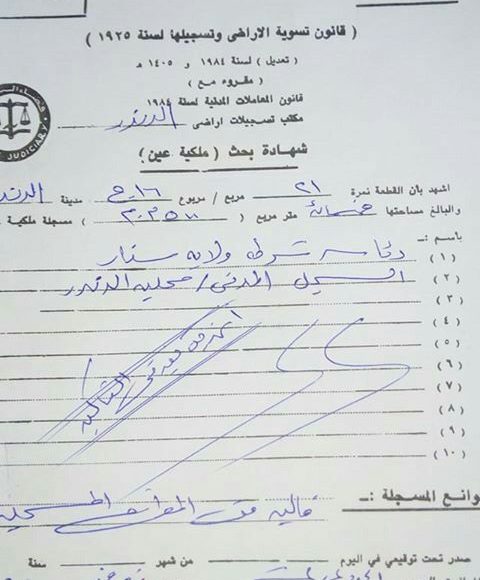 ( قانون تسوية الاراضى وتسجيلها لسنة ١٩٢٥ )
( تعديل ) لسنة ١٩٨٤ و ١٤٠٥ هـ
( مقروء مع )
قانون المعاملات المدنية لسنة ١٩٨٤
مكتب تسجيلات اراضى الدندر
JUDICIARY
شهادة بحث ( ملكية عين )
اشهد بأن القطعة نمرة ٢١ مربع / مربوع ١٦ ح مدينة الدندر
والبالغ مساحتها خمسمائة متر مربع ( ٥٠٠ م م ) مسجلة ملكية
بأسم :ـ
(١) رئاسة شرطة ولاية سنار
(٢) السجل المدنى / محلية الدندر
(٣)
(٤)
(٥)
(٦)
(٧)
(٨)
(٩)
(١٠)
وانع المسجلة :ـ
خالية من الموانع المسجلة
صدر تحت توقيعي في اليوم من شهر سنة